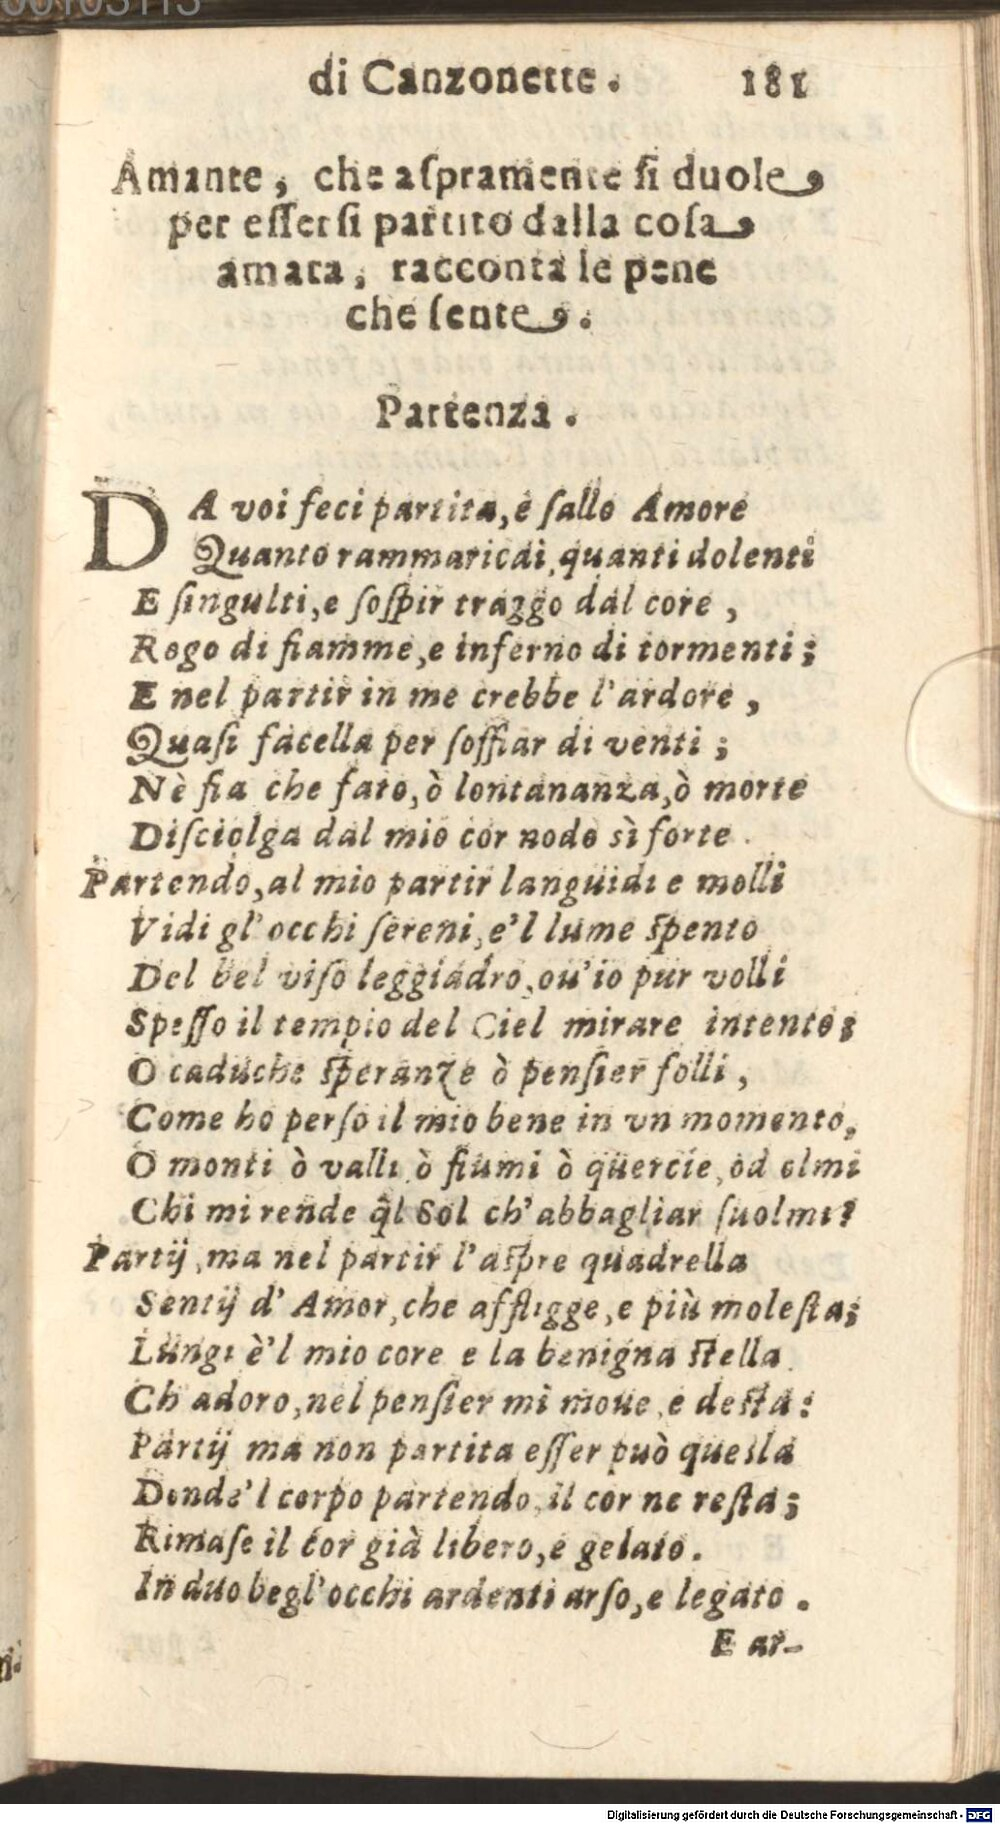 00103113
di Canzonette. 181
Amante, che aſpramente ſi duole
per eſſerſi partito dalla coſa
amata, racconta le pene
che ſente.
Partenza.
DA voi feci partita, e ſallo Amore
Quanto rammaricdi, quanti dolenti
E ſingulti, e ſoſpir traggo dal core,
Rogo di fiamme, e inferno di tormenti;
E nel partir in me crebbe l'ardore,
Quaſi facella per ſoffiar di venti;
Nè fia che fato, ò lontananza, ò morte
Diſciolga dal mio cor nodo sì forte.
Partendo, al mio partir languidi e molli
Vidi gl'occhi ſereni, e'l lume ſpento
Del bel viſo leggiadro, ou'io pur volli
Speſſo il tempio del Ciel mirare intento;
O caduche ſperanze ò penſier folli,
Come ho perſo il mio bene in vn momento,
O monti ò valli, ò fiumi ò quercie, od olmi
Chi mi rende q̃l Sol ch'abbagliar ſuolmi?
Partij, ma nel partir l'aſpre quadrella
Sentij d'Amor, che affligge, e più moleſta;
Lungi è'l mio core e la benigna ſtella
Ch adoro, nel penſier mi moue, e deſta:
Partij ma non partita eſſer può quella
Donde'l corpo partendo, il cor ne reſta;
Rimaſe il cor già libero, e gelato.
In duo begl'occhi ardenti arſo, e legato.
E ar-
Digitalisierung gefördert durch die Deutsche Forschungsgemeinschaft - DFG